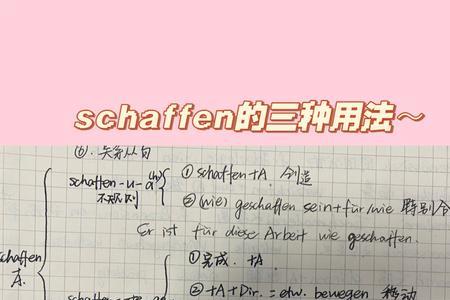 schaffen的三种用法～
⑥.关系从句
schaffen-u-a(h)
不规则
① schaffen+A. 创造
② (wie) geschaffen sein+für/wie 特别合
Er ist für diese Arbeit wie geschaffen.
schaffen
A.
① 完成. +A
② +A+Dir. = etw. bewegen 移动